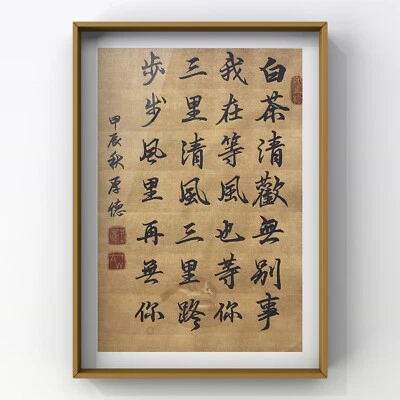 白茶清歡無别事
我在等風也等你
三里清風三里路
步步風里再無你
甲辰秋厚德